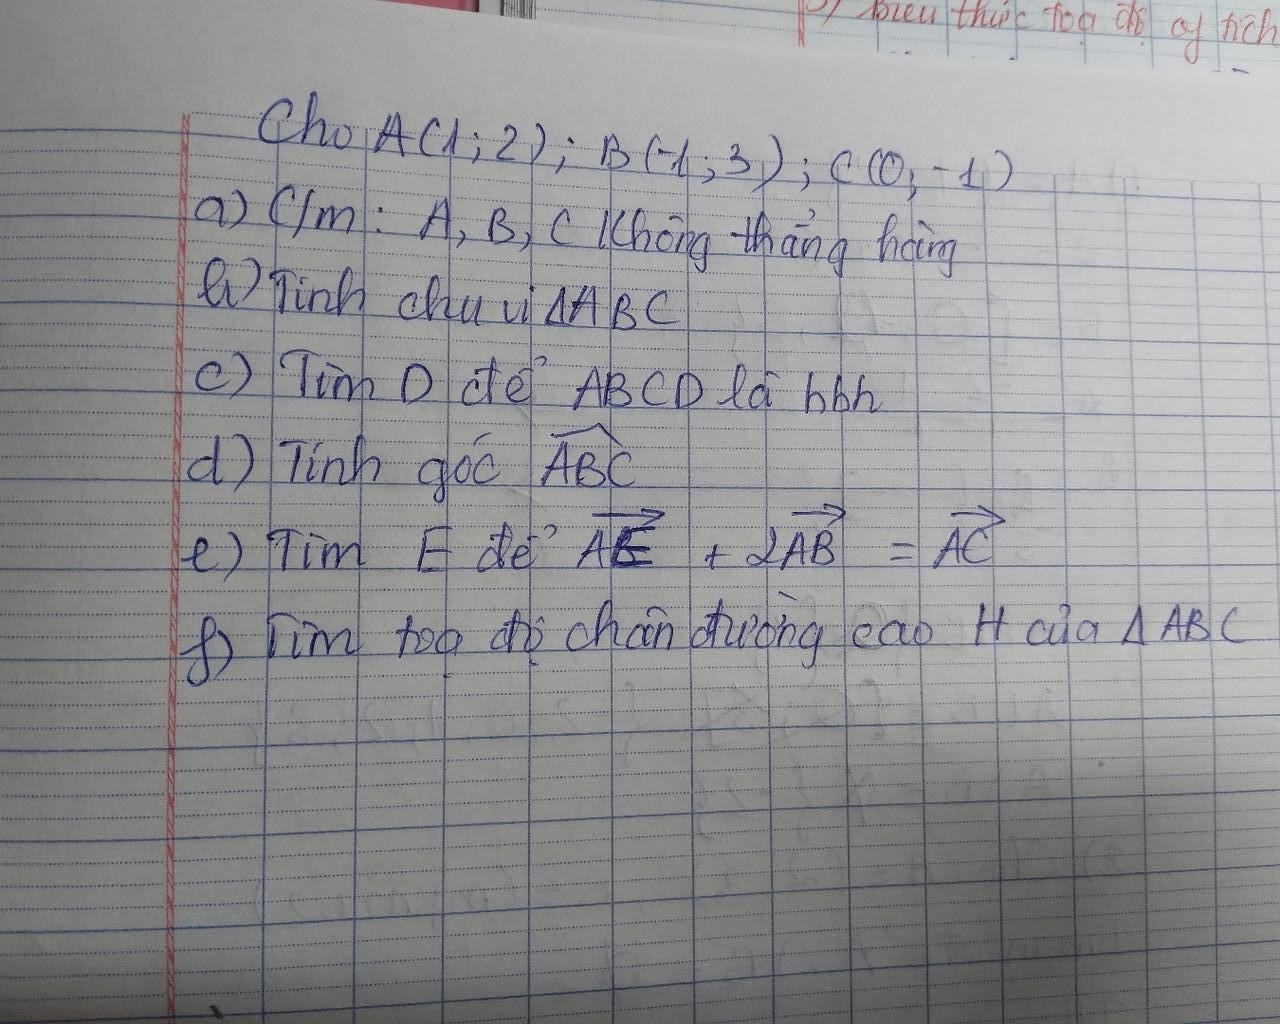 biểu thức toạ độ of tích
Cho A(1; 2); B(-1; 3); C(0; -1)
a) C/m: A, B, C Không thẳng hàng
b) Tính chu vi ΔABC
c) Tìm D để ABCD là hbh
d) Tính góc \widehat{ABC}
e) Tìm E để \overrightarrow{AE} + 2\overrightarrow{AB} = \overrightarrow{AC}
f) Tìm toạ độ chân đường cao H của Δ ABC